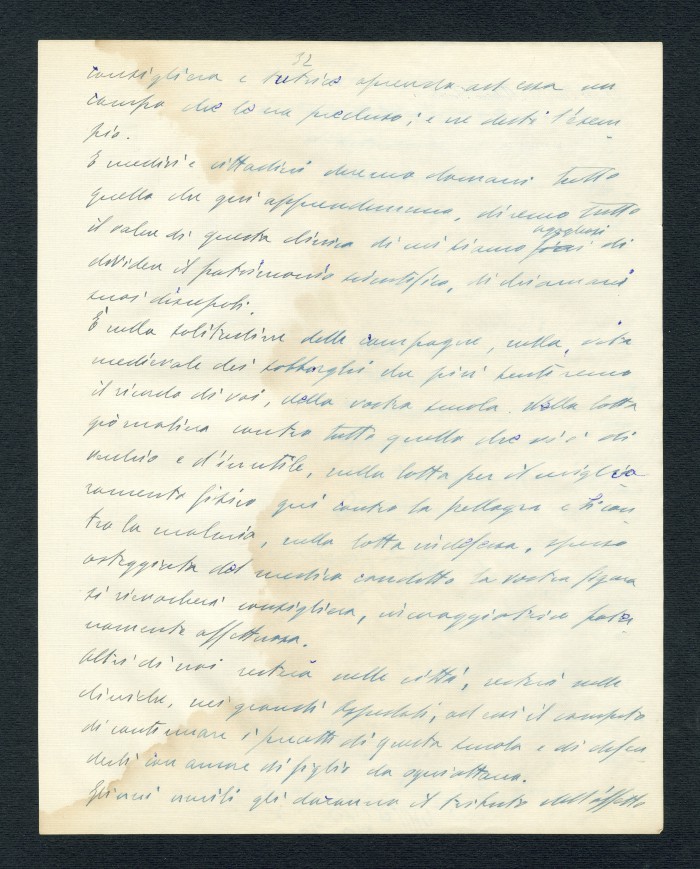 32
consigliera e tutrice aprendo ad essa un
campo che le era precluso; e ne destò l'esem
pio.
E medici e cittadini diremo domani tutto
quello che qui apprendemmo, diremo tutto
orgogliosi
il valore di questa clinica di cui siamo di
dividere il patrimonio scientifico, di chiamarci
suoi discepoli.
È nella solitudine delle campagne, nella vita
medievale dei sobborghi che più sentiremo
il ricordo di voi, della vostra scuola. Nella lotta
giornaliera contro tutto quello che vi è di
vecchio e d'inutile, nella lotta per il miglio
ramento fisico qui contro la pellagra e lì con
tro la malaria, nella lotta indefessa, spesso
osteggiata del medico condotto la vostra figura
si rievocherà consigliera, incoraggiatrice pater
namente affettuosa.
Altri di noi resterà nelle città, resterà nelle
cliniche, nei grandi Ospedali, ad essi il compito
di continuare i precetti di questa scuola e di difen
derli con amore di figlio da
Gli umili gli daranno il tributo dell'affetto